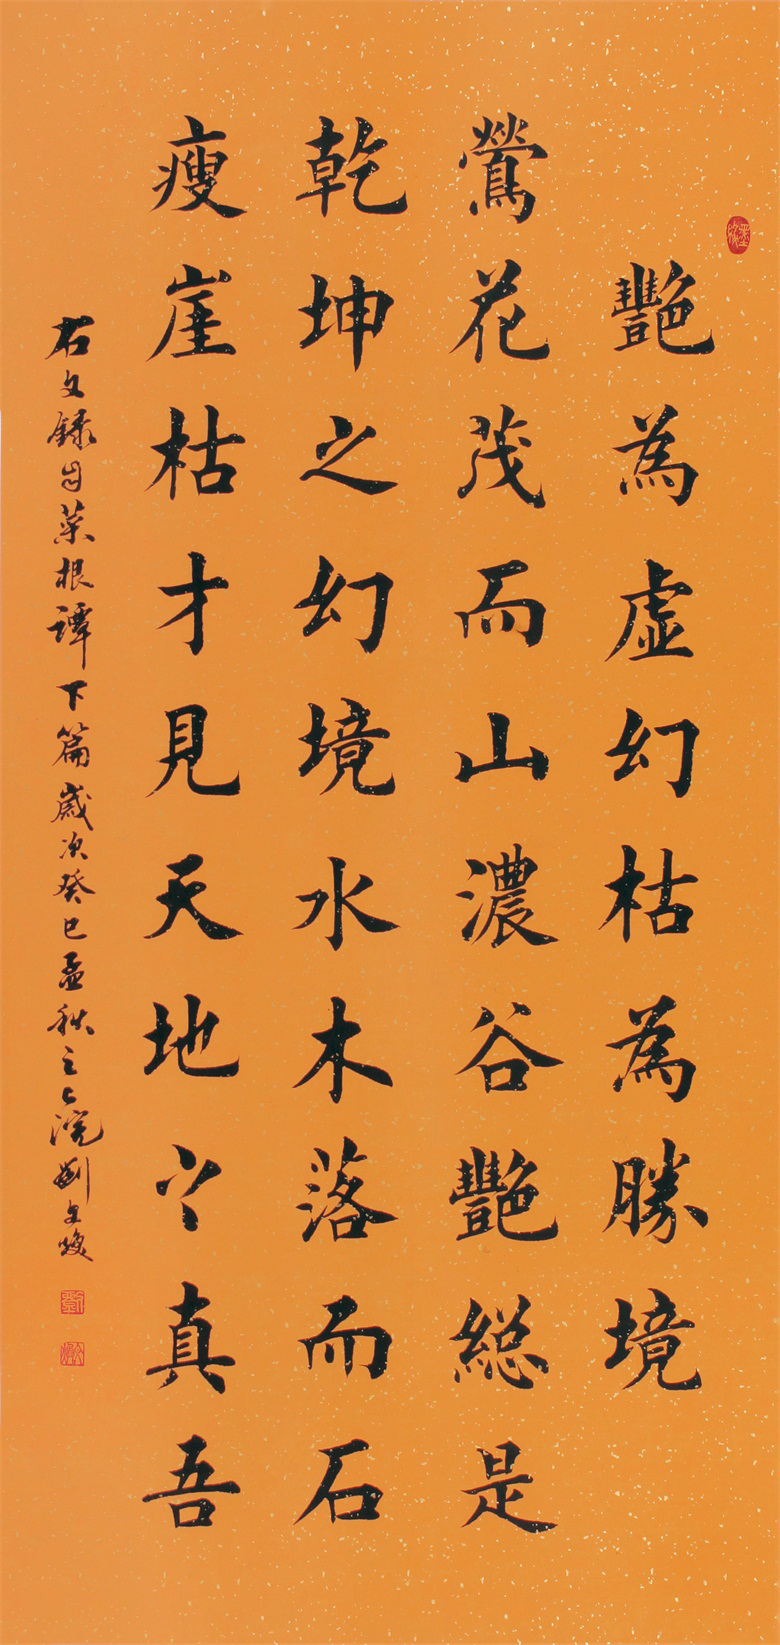 艷為虛幻枯為勝境
鶯花茂而山濃谷艷総是
乾坤之幻境水木落而石
瘦崖枯才見天地之真吾
右文録自菜根譚下篇歲次癸巳孟秋之上浣劉文煥